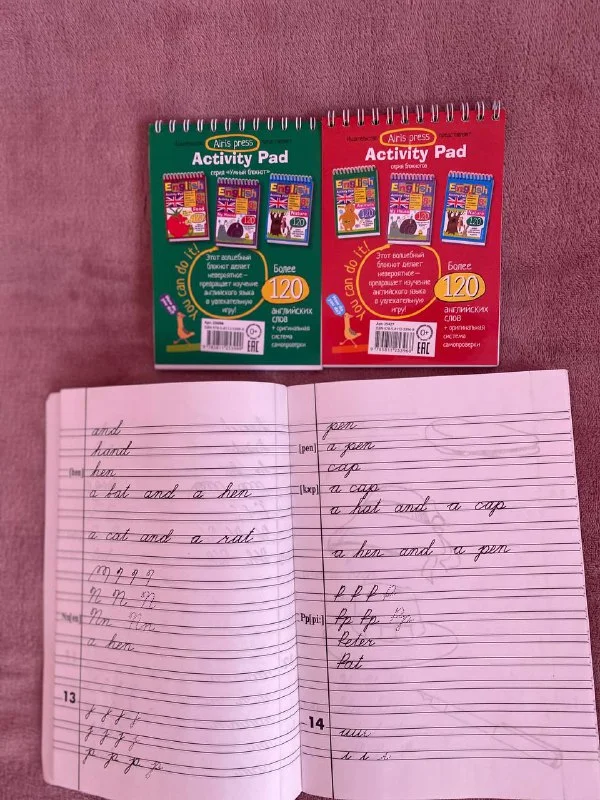 Airis press
Activity Pad
серия «Умный блокнот»
English
English
English
You can do it!
Этот волшебный
блокнот делает
невероятное –
превращает изучение
английского языка
в увлекательную
игру!
Более
120
английских
слов
+ оригинальная
система
самопроверки
0+
EAC
Airis press
Activity Pad
серия блокнотов
English
English
English
You can do it!
Этот волшебный
блокнот делает
невероятное –
превращает изучение
английского языка
в увлекательную
игру!
Более
120
английских
слов
+ оригинальная
система
самопроверки
0+
EAC
and
hand
[hen] hen
a bat and a hen
a cat and a rat
N N N
Nn[en] Nn Nn
a hen
13
p p p p
pen
[pen] a pen
cap
[kæp] a cap
a hat and a cap
a hen and a pen
P P P P
Pp[pi:] Pp Pp Pp
Peter
Pat
14